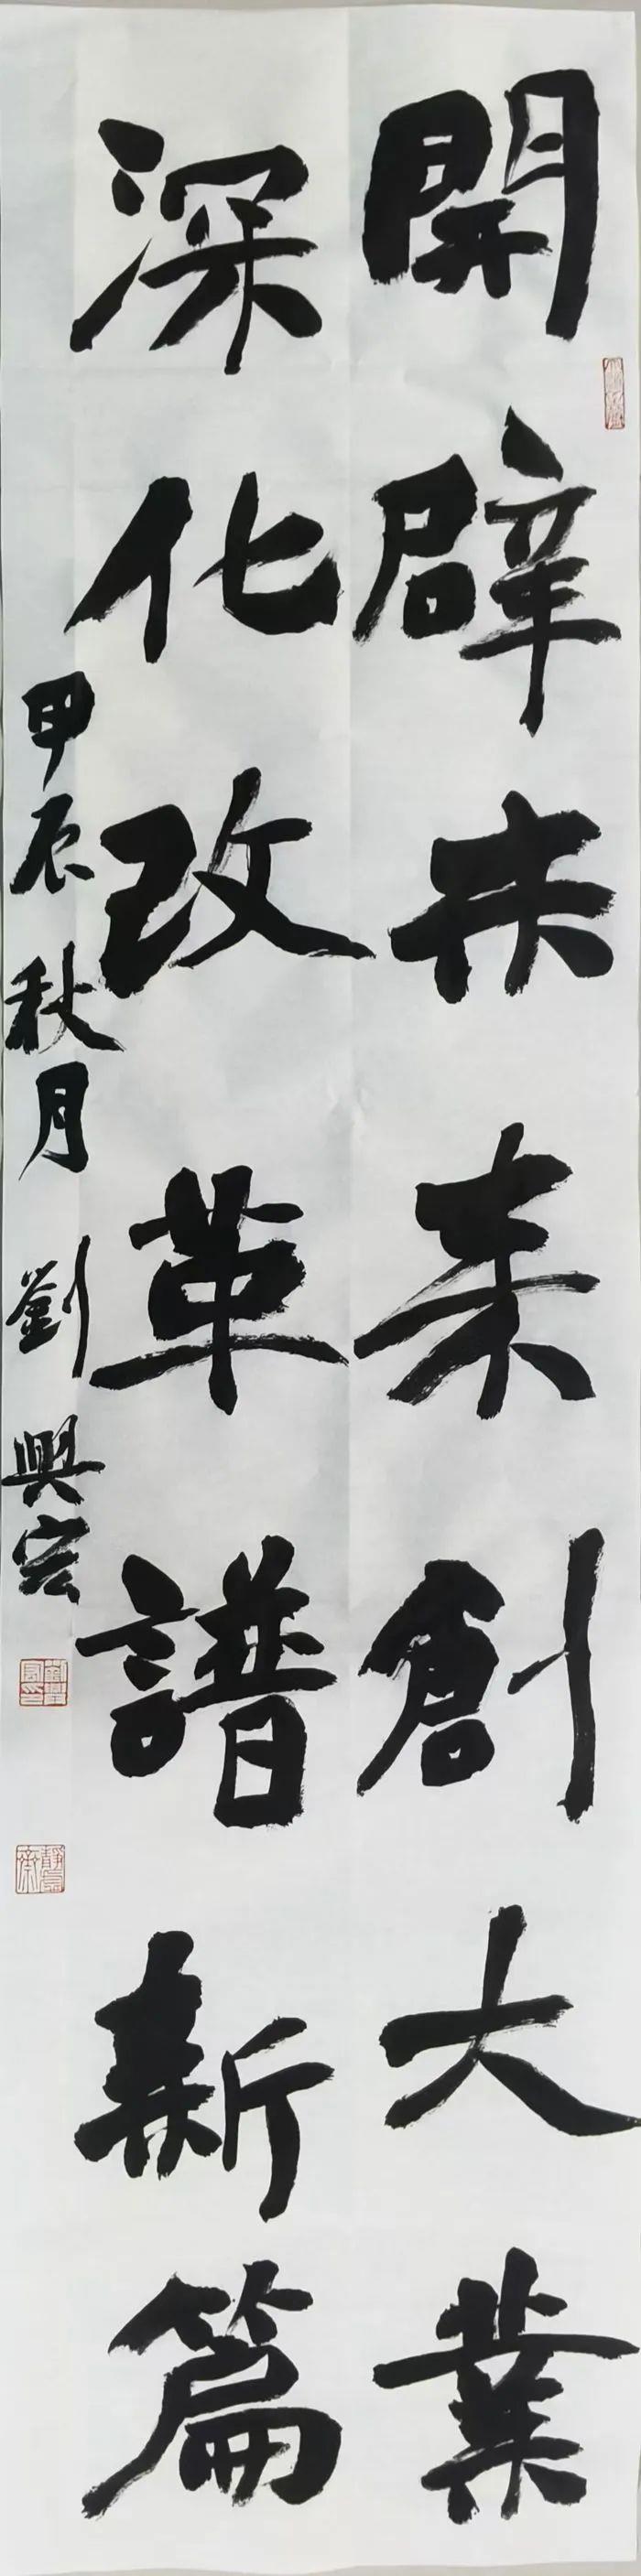 開辟未来創大業
深化改革譜新篇
甲辰秋月 劉興宏